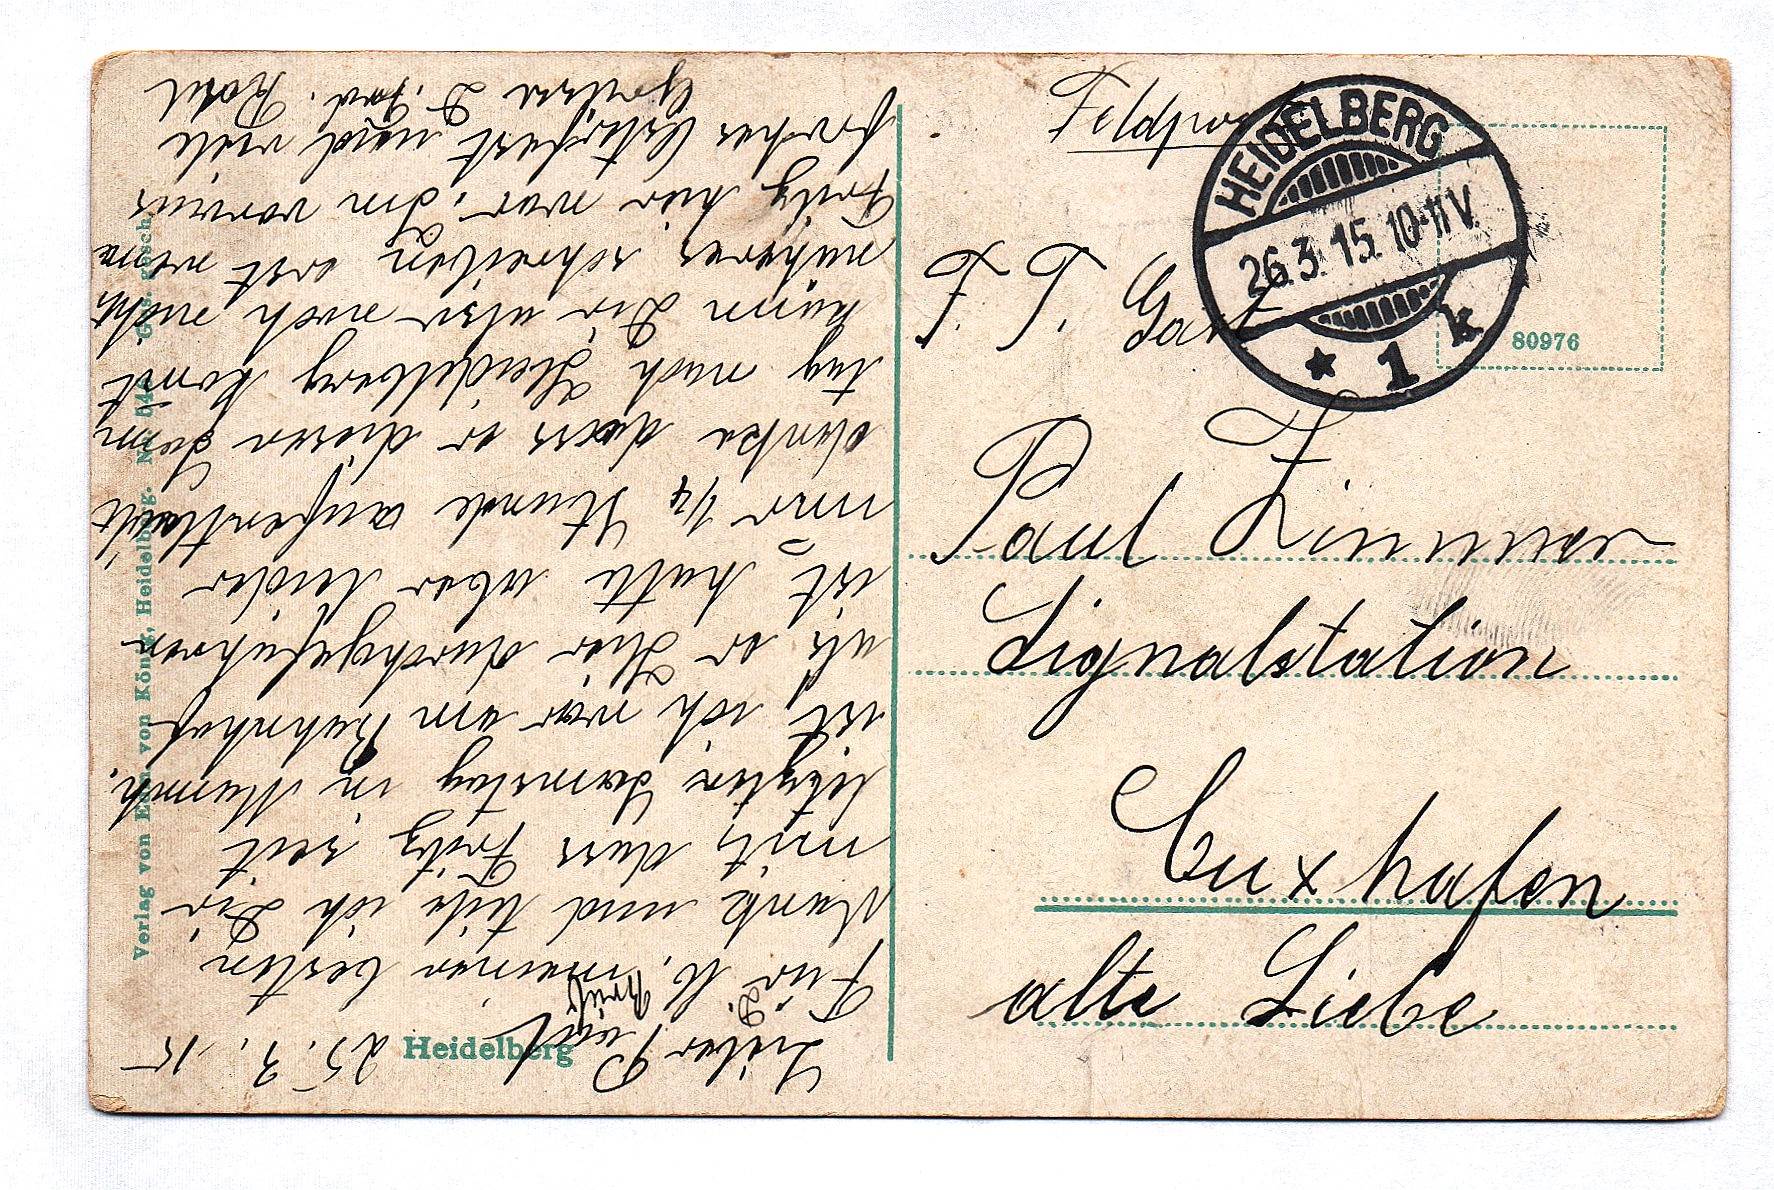 Feldpost
HEIDELBERG
26.3.15. 10-11V.
* 1 k
80976
F. T. Gast
Paul Zimmermann
Signalstation
Cuxhafen
alte Liebe
Heidelberg
Verlag von von König, Heidelberg. No. gesch.
Lieber Paul 25. 3. 15
Für D. lb. Brief meinen besten
Dank und teile ich Dir
mit, dass Fritz seit
letzten Samstag in
ist, ich war am Bahnhof
als er hier durchgefahren
ist, hatte aber leider
nur 1/4 Stunde aufenthalt
denke dass er diesen Sonn
tag nach Heidelberg komt
kann Dir also noch nicht
näheres schreiben erst wenn
Fritz hier war, Im voraus
frohes Osterfest und viele
Grüsse D. Frd. Karl